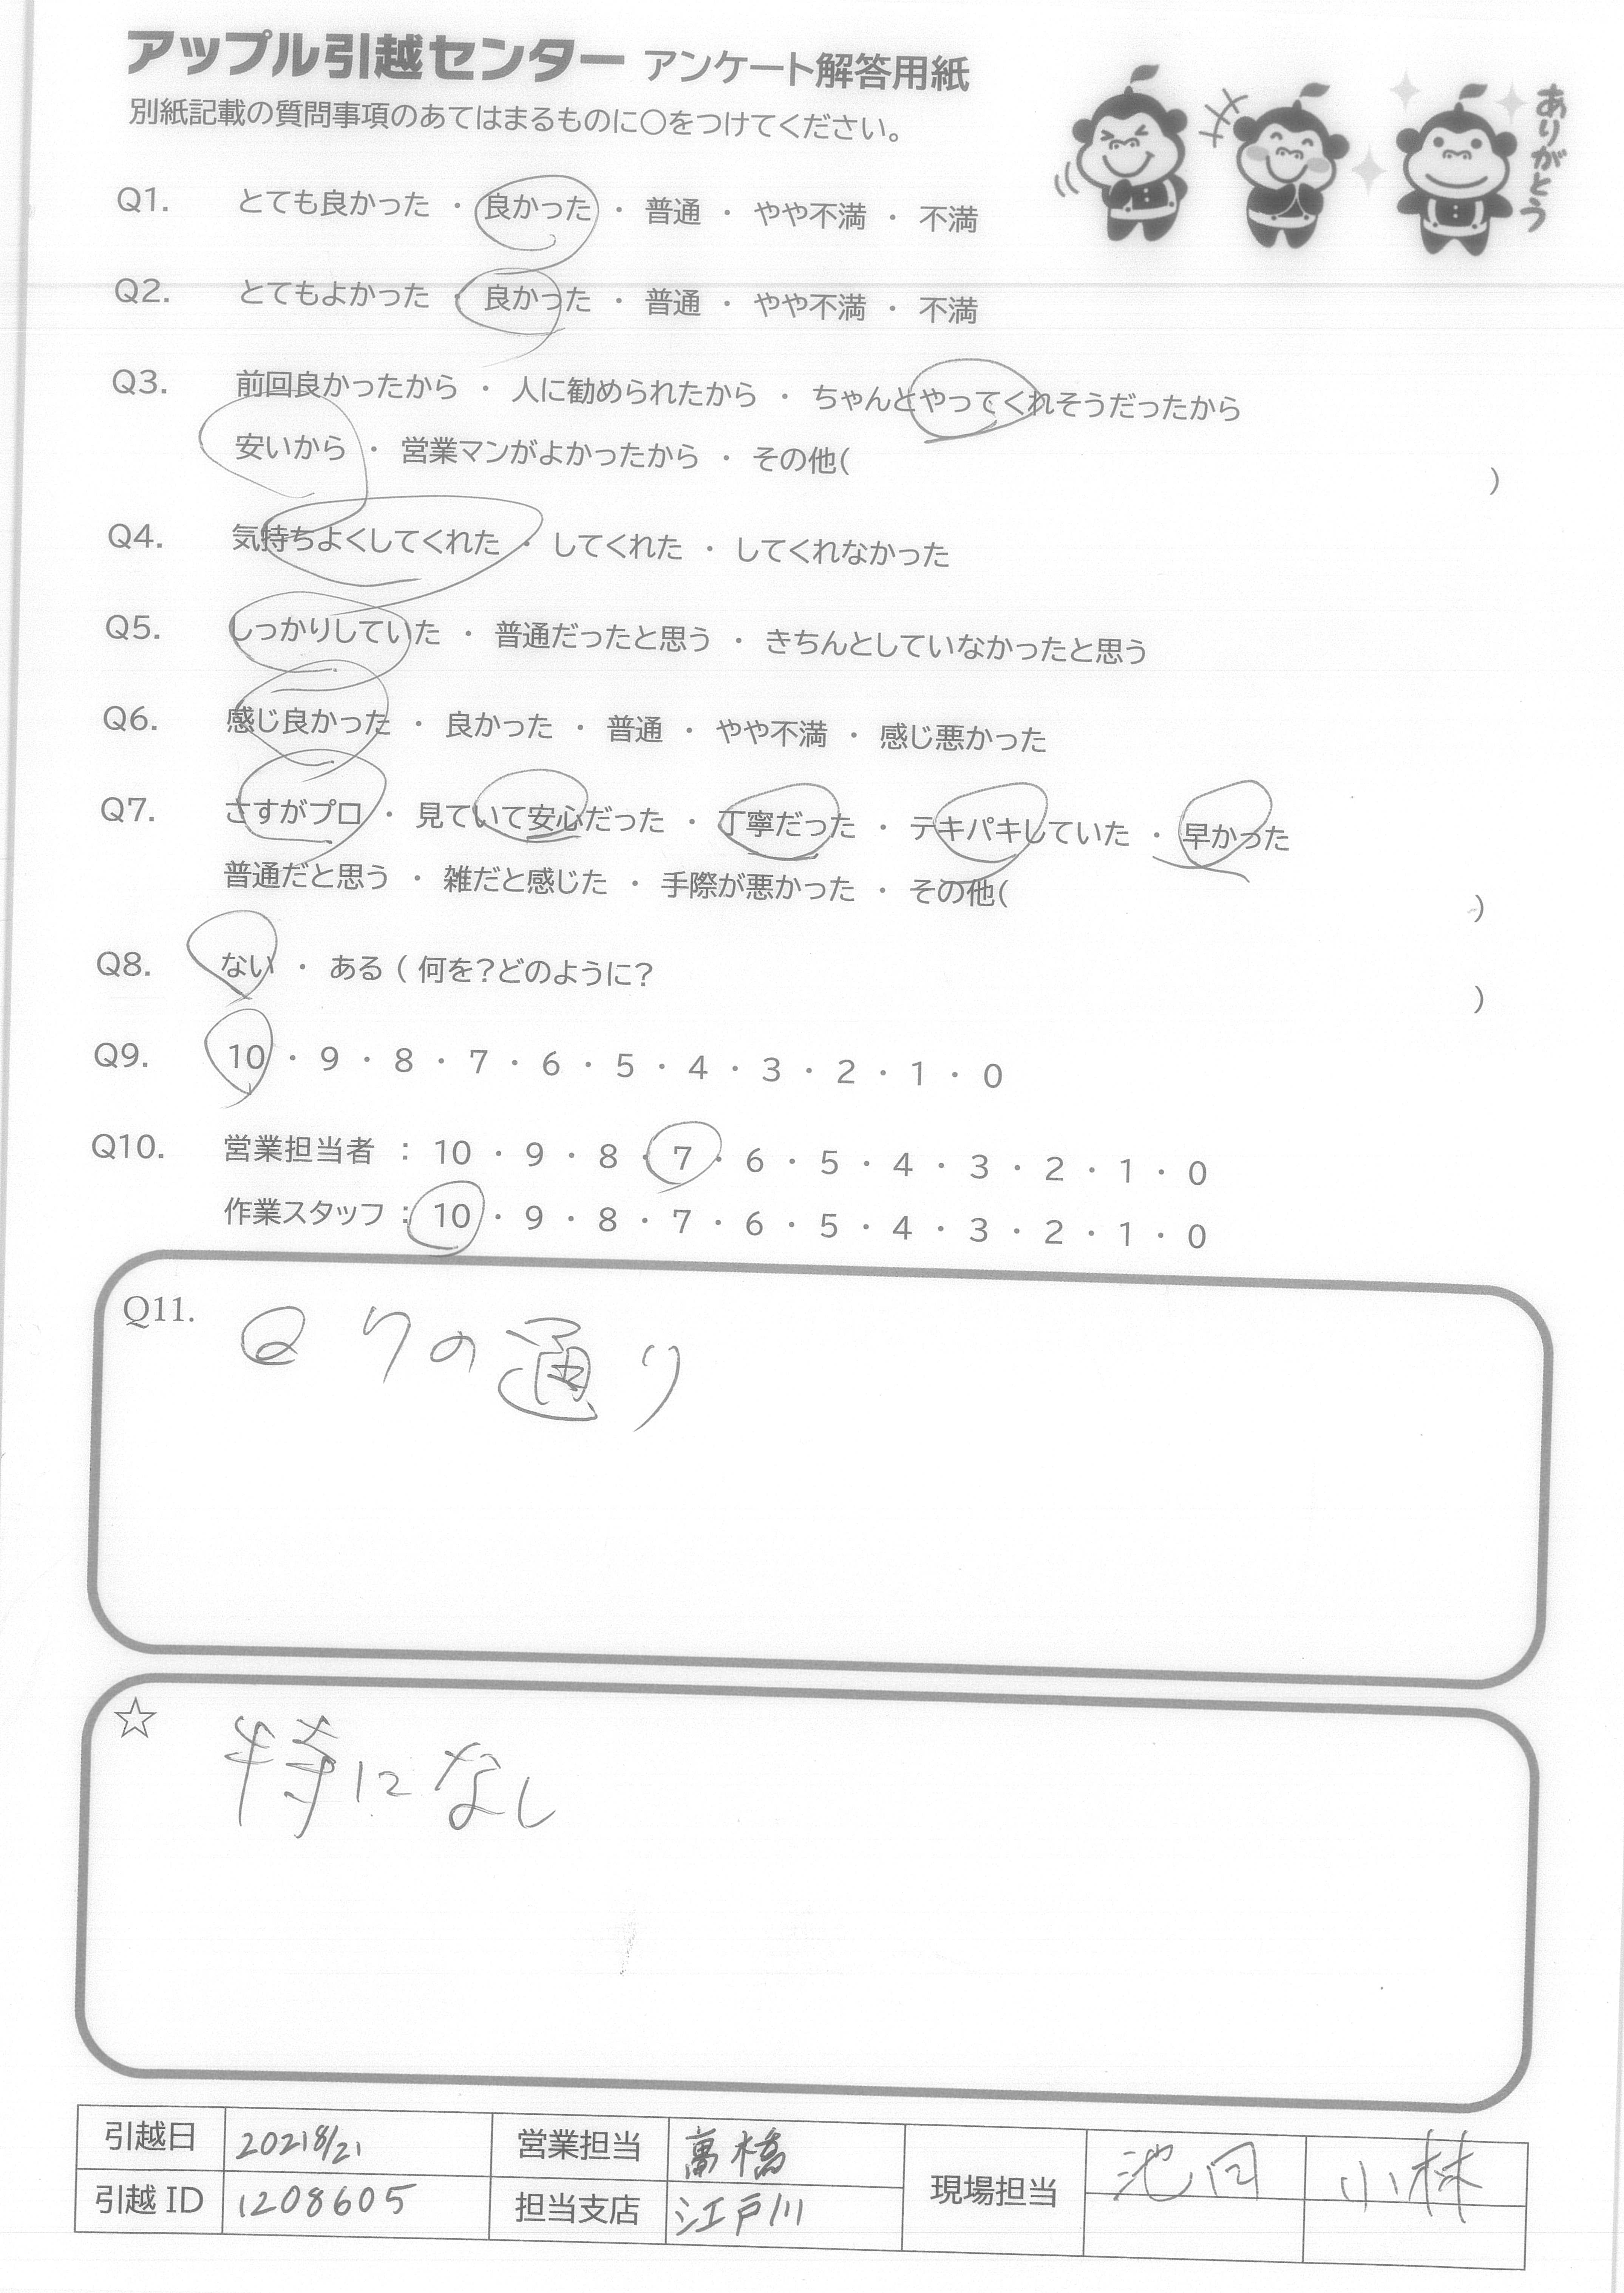 アップル引越センター アンケート解答用紙
別紙記載の質問事項のあてはまるものに〇をつけてください。
ありがとう
Q1. とても良かった ・ 良かった ・ 普通 ・ やや不満 ・ 不満
Q2. とてもよかった ・ 良かった ・ 普通 ・ やや不満 ・ 不満
Q3. 前回良かったから ・ 人に勧められたから ・ ちゃんとやってくれそうだったから
安いから ・ 営業マンがよかったから ・ その他( )
Q4. 気持ちよくしてくれた ・ してくれた ・ してくれなかった
Q5. しっかりしていた ・ 普通だったと思う ・ きちんとしていなかったと思う
Q6. 感じ良かった ・ 良かった ・ 普通 ・ やや不満 ・ 感じ悪かった
Q7. さすがプロ ・ 見ていて安心だった ・ 丁寧だった ・ テキパキしていた ・ 早かった
普通だと思う ・ 雑だと感じた ・ 手際が悪かった ・ その他( )
Q8. ない ・ ある ( 何を?どのように? )
Q9. 10 ・ 9 ・ 8 ・ 7 ・ 6 ・ 5 ・ 4 ・ 3 ・ 2 ・ 1 ・ 0
Q10. 営業担当者 : 10 ・ 9 ・ 8 ・ 7 ・ 6 ・ 5 ・ 4 ・ 3 ・ 2 ・ 1 ・ 0
作業スタッフ : 10 ・ 9 ・ 8 ・ 7 ・ 6 ・ 5 ・ 4 ・ 3 ・ 2 ・ 1 ・ 0
Q11. Q7の通り
☆ 特になし
引越日 2021 8/21 営業担当 高橋 現場担当 池田 小林
引越 ID 1208605 担当支店 江戸川